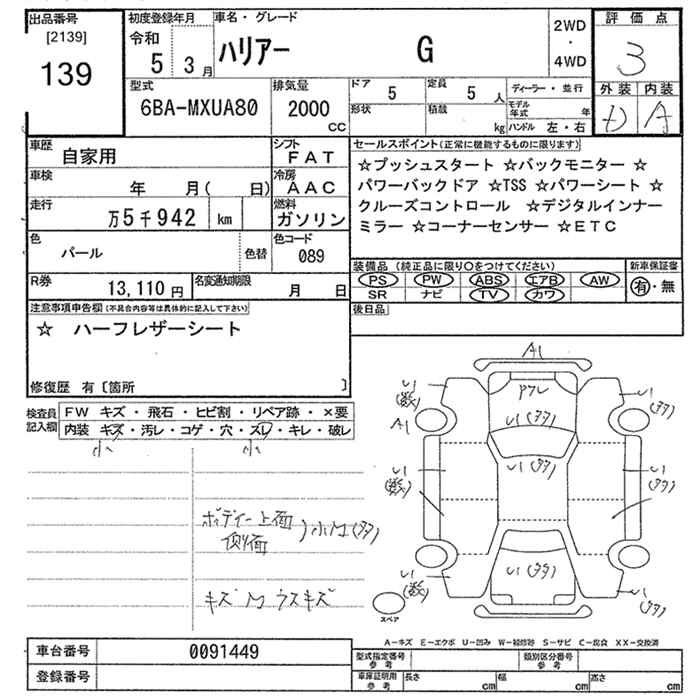 出品番号 初度登録年月 車名・グレード 2WD 評価点
[2139] 令和
139 5 3月 ハリアー G ・ 4WD 3
型式 排気量 ドア 5 定員 5人 ディーラー・並行 外装 内装
6BA-MXUA80 2000 cc 形状 積載 kg モデル年式 年 D A
ハンドル 左・右
車歴 自家用 シフト FAT セールスポイント(正常に機能するものに限ります)
車検 年 月( 日) 冷房 AAC ☆プッシュスタート ☆バックモニター ☆
パワーバックドア ☆TSS ☆パワーシート ☆
走行 万5千942 km 燃料 ガソリン クルーズコントロール ☆デジタルインナー
ミラー ☆コーナーセンサー ☆ETC
色 パール 色替 色コード 089
装備品 (純正品に限り〇をつけてください) 新車保証書
R券 13,110円 名変通知期限 月 日 PS PW ABS エアB AW 有・無
SR ナビ TV カワ
注意事項申告欄(不具合内容等は具体的に記入して下さい) 後日品
☆ ハーフレザーシート
修復歴 有〔箇所 〕
検査員 FW キズ・飛石・ヒビ割・リペア跡・×要
記入欄 内装・キズ・汚レ・コゲ・穴・スレ・キレ・破レ
小 小
A1
アワレ
い1(数) い1(タタ)
A1 い1(タタ)
い1(タタ)
い1(数) い1(タタ)
ボディー上面
側面 )小凹(タタ)
い1(タタ)
い1(数) い1(タタ)
キズ凹ウスキズ
スペア
A-キズ E-エクボ U-凹み W-補修跡 S-サビ C-腐食 XX-交換済
車台番号 0091449 型式指定番号 参考 類別区分番号 参考
登録番号 車庫証明用 参考 長さ cm 幅 cm 高さ cm